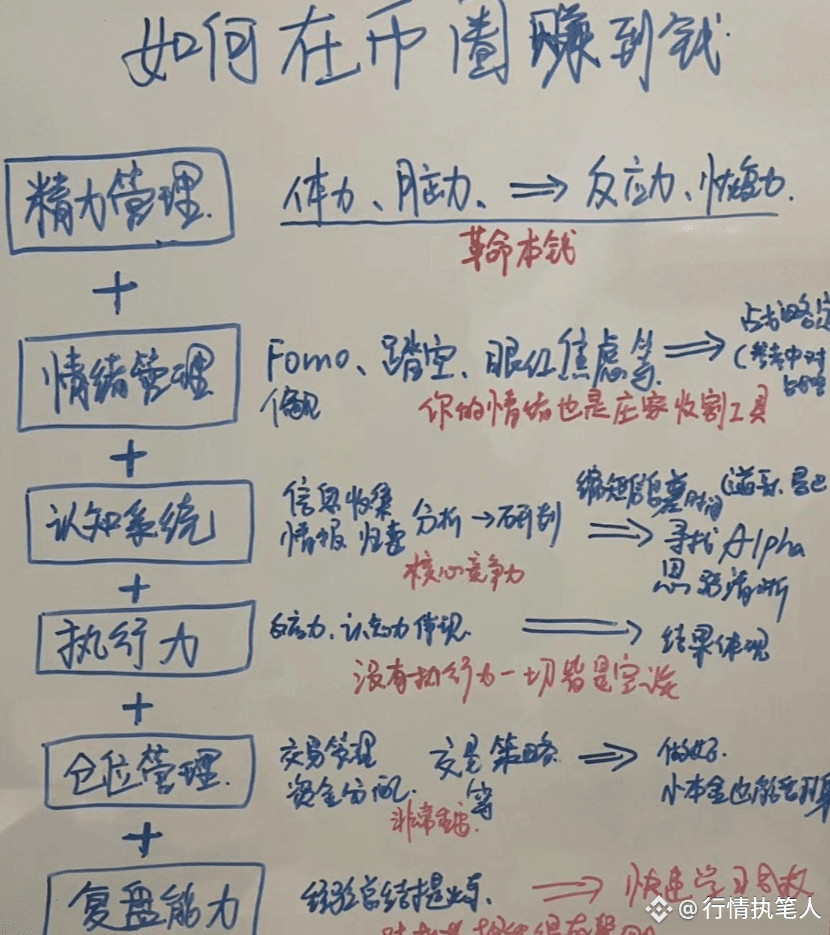 如何在币圈赚到钱
精力管理.
体力、脑力、⇒ 反应力、恢复力.
革命本钱
+
情绪管理
Fomo、踏空、眼红焦虑等. ⇒
(参考中对
偏见
你的情绪也是庄家收割工具
+
认知系统
信息收集
情报 归纳
分析→研判 ⇒
缩短
时间
寻找Alpha
思路清晰
核心竞争力
+
执行力
反应力、认知力体现. ⇒ 结果体现
没有执行力一切皆是空谈
+
仓位管理.
交易管理
资金分配.
交易策略
等
⇒ 做好.
小本金也能
非常重要.
+
复盘能力
经验总结提炼. ⇒ 快速学习
@行情执笔人